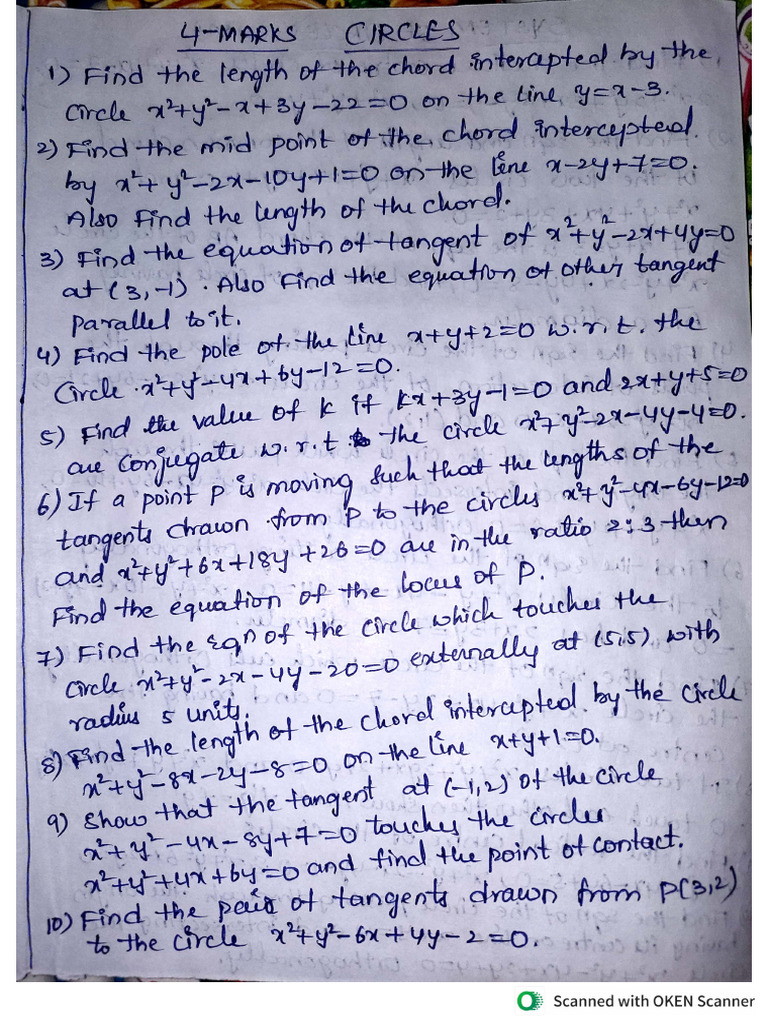 4-MARKS CIRCLES
1) Find the length of the chord intercepted by the
Circle x²+y²-x+3y-22=0 on the Line y=x-3.
2) Find the mid point of the chord intercepted
by x²+y²-2x-10y+1=0 on the line x-2y+7=0.
Also Find the length of the chord.
3) Find the equation of tangent of x²+y²-2x+4y=0
at (3,-1). Also Find the equation of other tangent
parallel to it.
4) Find the pole of the line x+y+2=0 w.r.t. the
Circle x²+y²-4x+6y-12=0.
5) Find the value of k if kx+3y-1=0 and 2x+y+5=0
are conjugate w.r.t the circle x²+y²-2x-4y-4=0.
6) If a point P is moving such that the lengths of the
tangents drawn from P to the circles x²+y²-4x-6y-12=0
and x²+y²+6x+18y+26=0 are in the ratio 2:3 then
Find the equation of the locus of P.
7) Find the Eqn of the circle which touches the
circle x²+y²-2x-4y-20=0 externally at (5,5) with
radius 5 units.
8) Find the length of the chord intercepted by the circle
x²+y²-8x-2y-8=0 on the line x+y+1=0.
9) Show that the tangent at (-1,2) of the circle
x²+y²-4x-8y+7=0 touches the circles
x²+y²+4x+6y=0 and find the point of contact.
10) Find the pair of tangents drawn from P(3,2)
to the circle x²+y²-6x+4y-2=0.
Scanned with OKEN Scanner